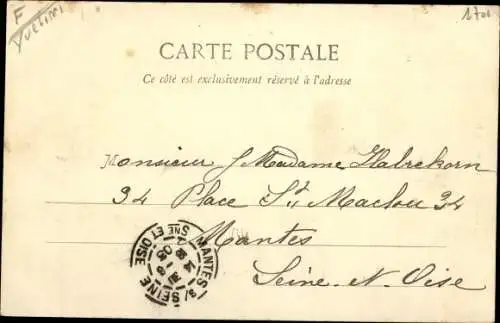 F
Yvelines
1700
CARTE POSTALE
Ce côté est exclusivement réservé à l'adresse
Monsieur & Madame Habrekorn
34 Place St Maclou 34
Mantes
Seine-et-Oise
MANTES S/ SEINE
SNE ET OISE